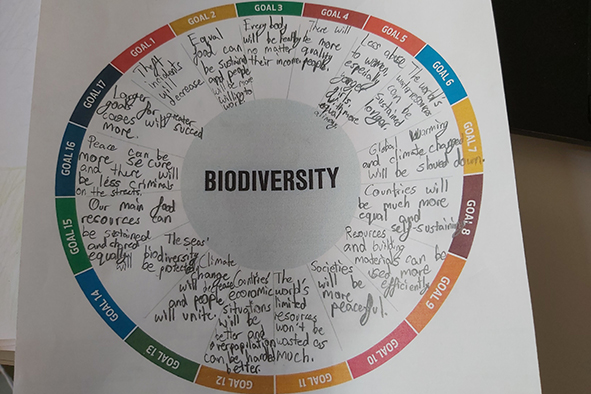 BIODIVERSITY
GOAL 1
Theft
incidents
will
decrease
GOAL 2
Equal
food can
be sustained
and people
will be more
willing to
work
GOAL 3
Everybody
will be healthy
no matter
their income
GOAL 4
There will
be more
quality
people.
GOAL 5
Less abuse
to women,
especially
young
girls,
equal
always
GOAL 6
The world's
water resources
can be
sustained
longer.
GOAL 7
Global Warming
and climate change
will be slowed down.
GOAL 8
Countries will
be much more
equal and
self-sustaining
GOAL 9
Resources
and building
materials can be
used more
efficiently
GOAL 10
Societies
will be
more
peaceful.
GOAL 11
The
world's
limited
resources
won't be
wasted as
much.
GOAL 12
Countries'
economic
situations
will be
better and
overpopulation
can be handled
better.
GOAL 13
Climate
change
will decrease
and people
will unite.
GOAL 14
The seas'
biodiversity
will be protected
GOAL 15
Our main food
recources can
be sustained
and shared
equally
GOAL 16
Peace can be
more secure
and there will
be less criminals
on the streets.
GOAL 17
Larger
goals for greater
causes will succeed
more.